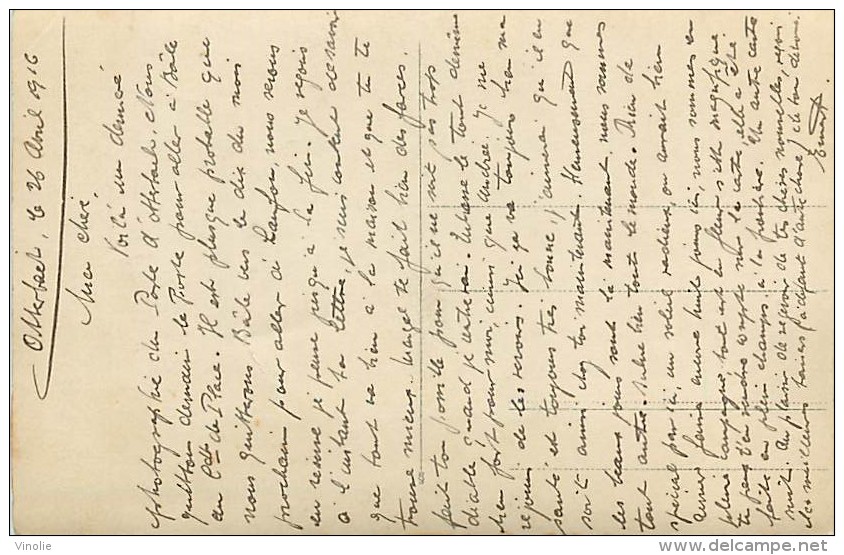 Otterbach, le 26 Avril 1916
Ma chère,
Voilà un dernière
photographie du Poste d'Otterbach. Nous
quittons demain le Poste pour aller à Bâle
au de Place. Il est plusque probable que
nous quitterons Bâle vers le dix du mois
prochain pour aller à Laufon, nous serons
en réserve je pense jusqu'à la fin. Je reçois
à l'instant ta lettre, je suis content de savoir
que tout va bien à la maison et que tu te
trouve mieux. Marcel te fait bien des farces.
fait ton possible pour qu'il ne soit pas trop
diable quand je rentrerai. Embrasse le tout de même
bien fort pour moi, ainsi que Andrée. Je me
rejouis de les revoir. Ici ça va toujours bien ma
santé est toujours très bonne, j'aimerai qu'il en
soit ainsi chez toi maintenant. Heureusement que
les beaux jours sont là maintenant, nous sommes
tout autre. Salue bien tout le monde. Rien de
spécial par ici, un soleil radieux, on aurait bien
aimer faire encore huit jours ici, nous sommes en
pleine campagne tout est en fleurs c'est magnifique
tu peux t'en rendre compte sur la carte, elle a été
faite en plein champs, à la frontière. Une autre carte
suit. Au plaisir de recevoir de tes chères nouvelles, reçois
les meilleurs baisers
Ernest
© Vinolie
http://www.delcampe.net